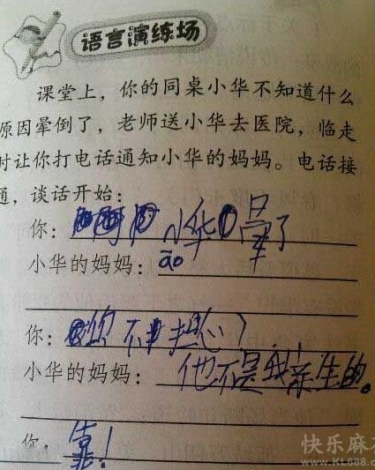 语言演练场
课堂上，你的同桌小华不知道什么
原因晕倒了，老师送小华去医院，临走
时让你打电话通知小华的妈妈。电话接
通，谈话开始：
你：小华晕了
小华的妈妈：āo
你：你不担心？
小华的妈妈：他不是我亲生的。
你，靠！
快乐麻花
www.KL688.com